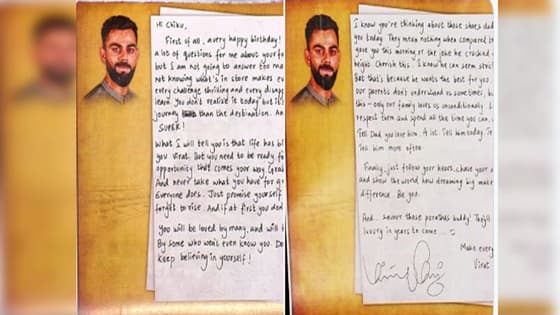 Hi Chiku,
First of all, a very happy birthday!
a lot of questions for me about your fu
but I am not going to answer too ma
not knowing what's in store makes e
every challenge thrilling and every disap
learn. You don't realise is today but it
journey than the destination. An
SUPER!
What I will tell you is that life has bi
you Virat. But you need to be ready fo
opportunity that comes your way. Gra
And never take what you have for g
Everyone does. Just promise yourself
forget to rise. And if at first you don
You will be loved by many, and will
By some who won't even know you. Do
Keep believing in yourself!
I know you're thinking about those shoes dad
you today. They mean nothing when compared to
gave you this morning or the joke he cracked
height. Cherish this. I know he can seem stric
But that's because he wants the best for you
our parents don't understand us sometimes, b
this - only our family loves us unconditionally.
respect them and spend all the time you can,
Tell Dad you love him. A lot. Tell him today. Te
Tell him more often.
Finally, just follow your heart, chase your d
and show the world how dreaming big make
difference. Be you.
And... savour those parathas buddy! They'll
luxury in years to come...
Make every
Virat